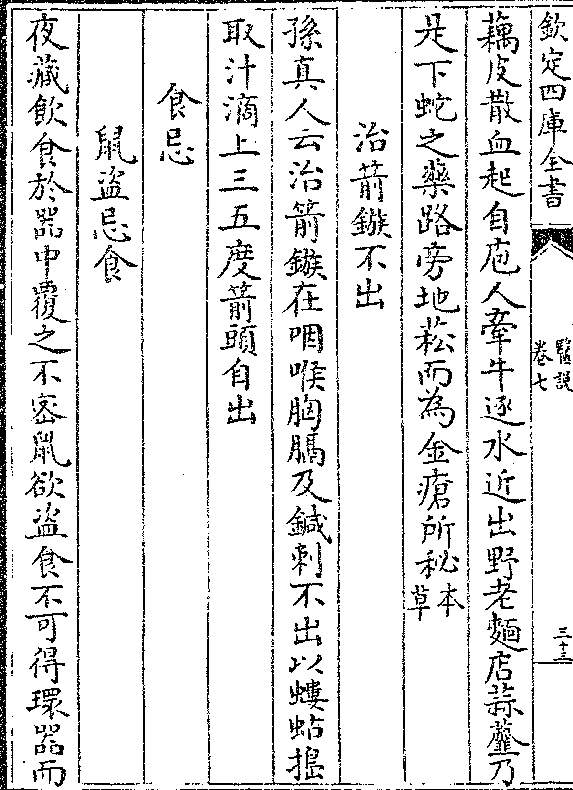 欽定四庫全書
醫説
卷七
三十三
藕皮散血起自庖人牽牛逐水近出野老麵店蒜虀乃
是下蛇之藥路旁地菘而為金瘡所秘本草
治箭鏃不出
孫真人云治箭鏃在咽喉胸膈及鍼刺不出以螻蛄搗
取汁滴上三五度箭頭自出
食忌
鼠盜忌食
夜藏飲食於器中覆之不密鼠欲盜食不可得環器而